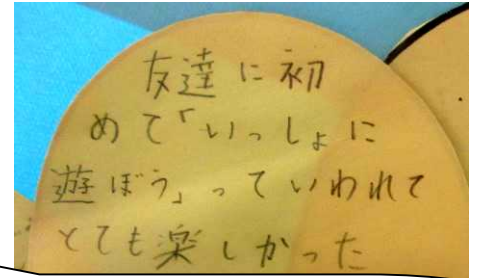 友達に初
めて「いっしょに
遊ぼう」っていわれて
とても楽しかった